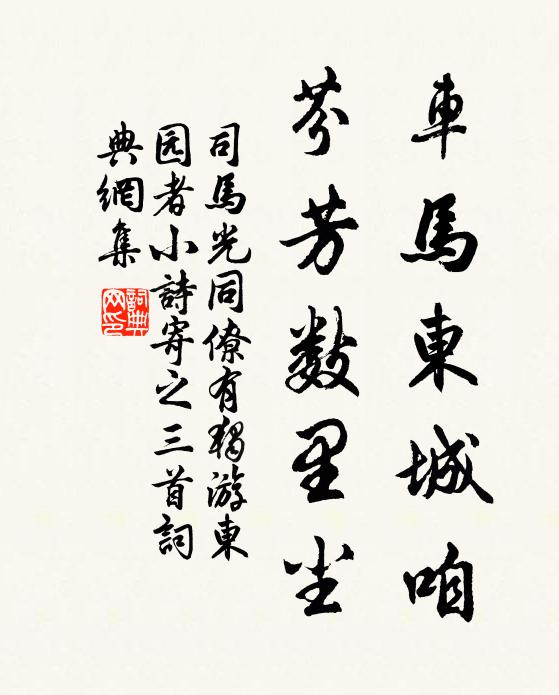 車馬東城咱
芬芳数里尘
司馬光同僚有獨游東
园者小詩寄之三首詞
典網集
詞典网印